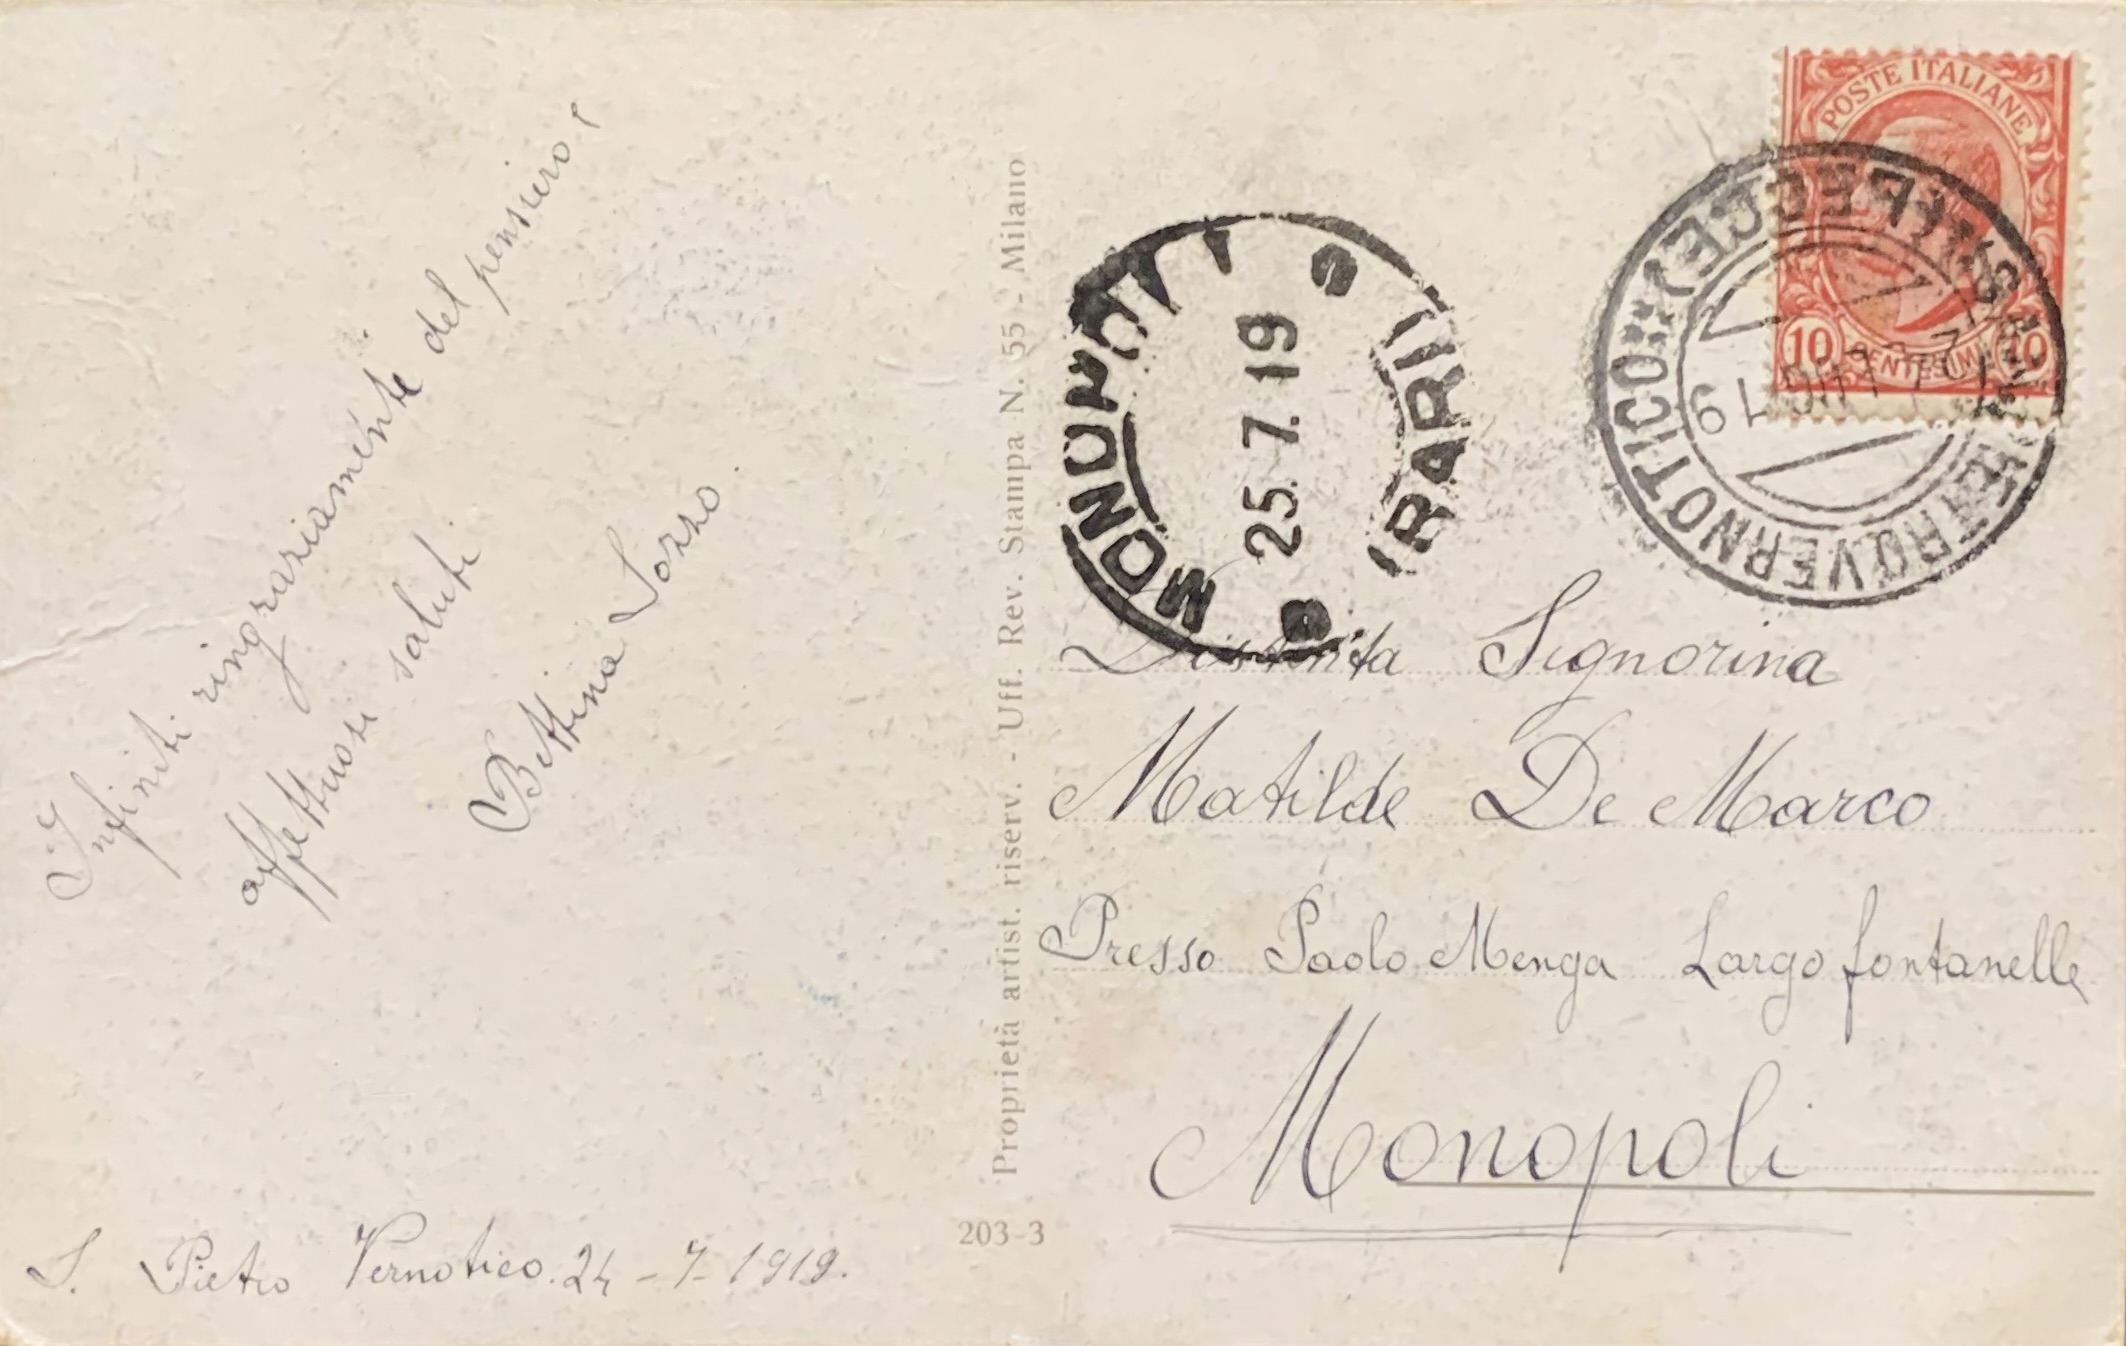 Infiniti ringraziamenti del pensiero e
affettuosi saluti
Bettina Sozzo
S. Pietro Vernotico. 24-7-1919.
Proprietà artist. riserv. - Uff. Rev. Stampa N. 55 - Milano
203-3
POSTE ITALIANE
10 CENTESIMI 10
MONOPOLI
25.7.19
(BARI)
S. PIETRO VERNOTICO (LECCE)
19
Distinta Signorina
Matilde De Marco
Presso Paolo Menga Largo fontanelle
Monopoli